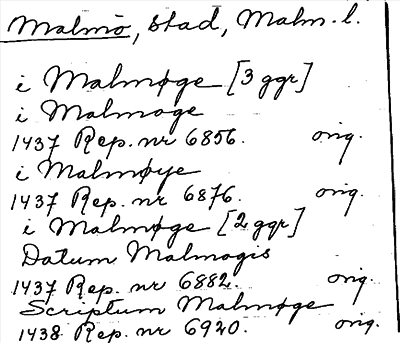 Malmö, stad, Malm. l.
i Malmøge [3 ggr]
i Malmoge
1437 Rep. nr 6856. orig.
i Malmøye
1437 Rep. nr 6876. orig.
i Malmøge [2 ggr]
Datum Malmogis
1437 Rep. nr 6882. orig.
Scriptum Malmøge
1438 Rep. nr 6920. orig.